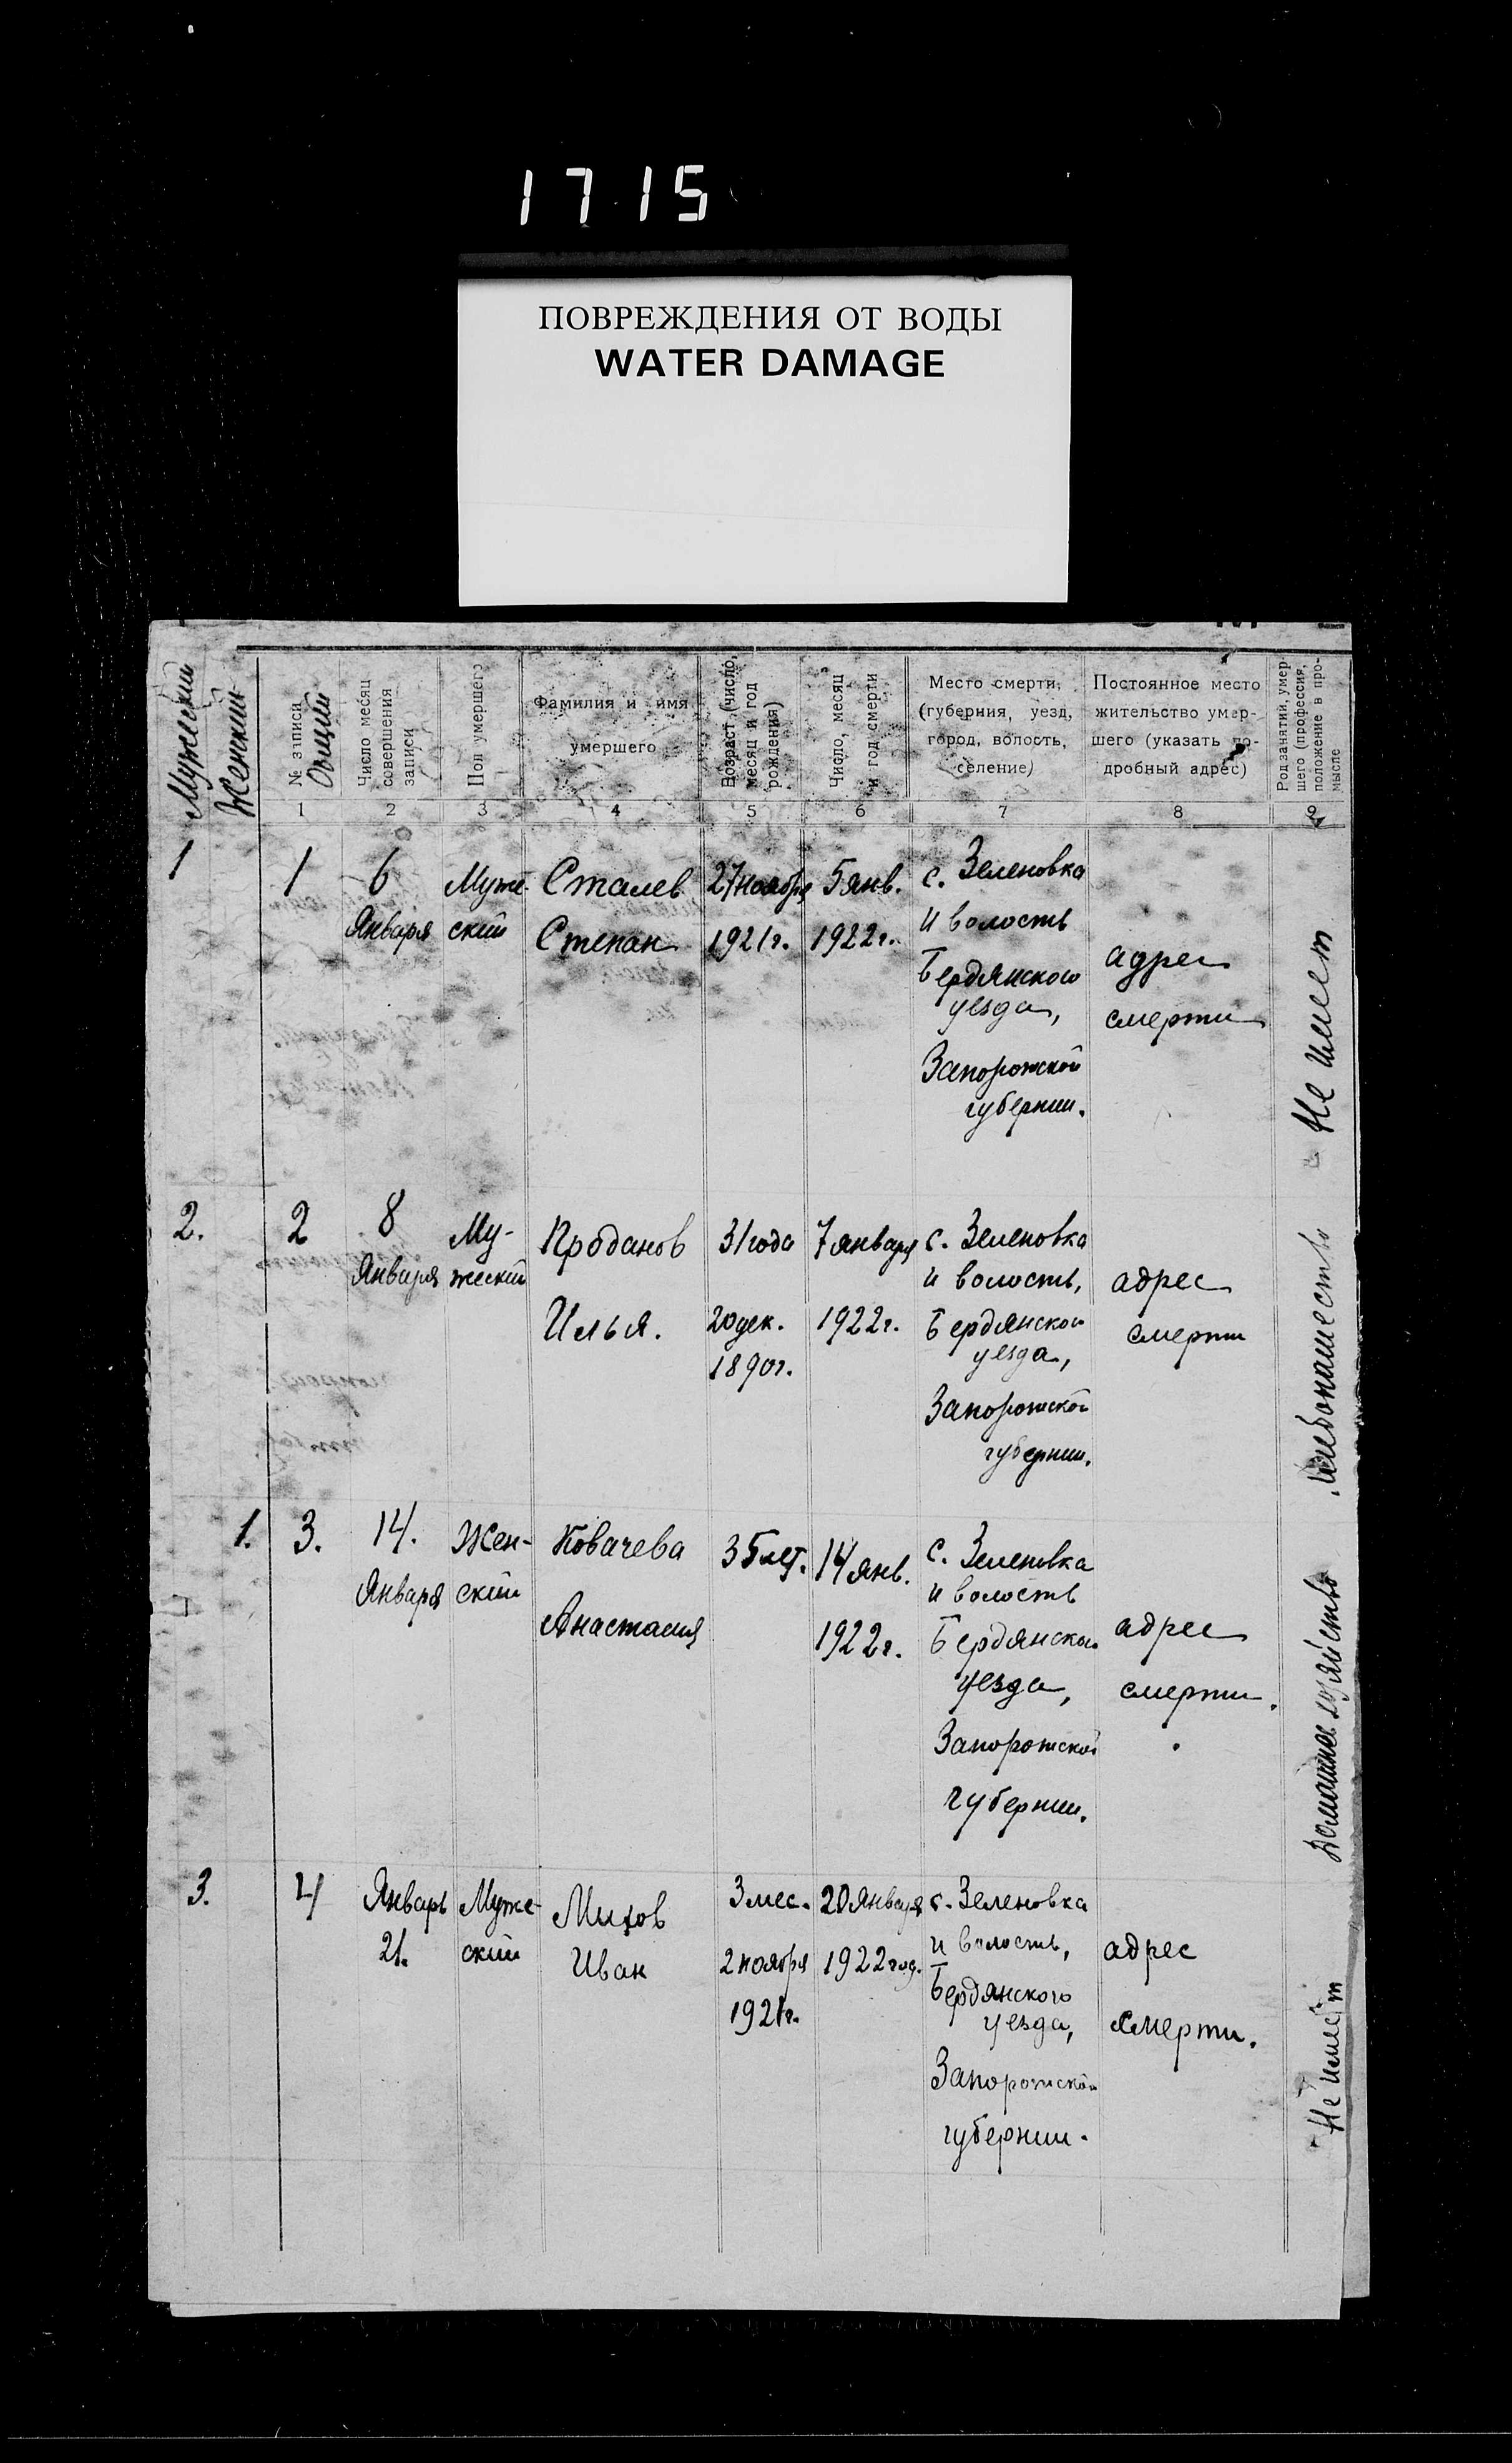 1715
ПОВРЕЖДЕНИЯ ОТ ВОДЫ
WATER DAMAGE
Мужеский
Женский
№ записи
Общий
Число месяц
совершения
записи
Пол умершего
Фамилия и имя
умершего
Возраст (число,
месяц и год
рождения)
Число, месяц
и год смерти
Место смерти,
(губерния, уезд,
город, волость,
селение)
Постоянное место
жительство умер-
шего (указать по-
дробный адрес)
Род занятий, умер-
шего (профессия,
положение в про-
мысле
1 2 3 4 5 6 7 8 9
1
1
6
Января
Муже-
ский
Сталев
Степан
27 ноября
1921г.
5 янв.
1922г.
с. Зеленовка
и волость
Бердянского
уезда,
Запорожской
губернии.
адрес
смерти
Не имеет
2.
2
8
Января
Му-
жеский
Проданов
Илья.
31 года
20 дек.
1890г.
7 января
1922г.
с. Зеленовка
и волость,
Бердянского
уезда,
Запорожской
губернии.
адрес
смерти
Хлебопашество
1.
3.
14.
Января
Жен-
ский
Ковачева
Анастасия
35 лет.
14 янв.
1922г.
с. Зеленовка
и волость
Бердянского
уезда,
Запорожской
губернии.
адрес
смерти.
Домашнее хозяйство
3.
4
Январь
21.
Муже-
ский
Митов
Иван
3 мес.
2 ноября
1921г.
20 Января
1922 год.
с. Зеленовка
и волость,
Бердянского
уезда,
Запорожской
губернии.
адрес
смерти.
Не имеет